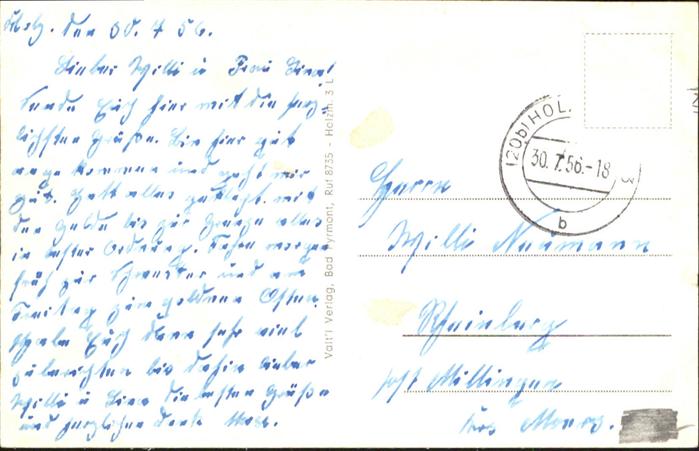 Holz. den 30.7.56.
Lieber Willi u Frau Lina!
Sende Euch hier mit die herz
lichsten Grüße. Bin hier gut
ange kommen und geht mir
gut. Hatt alles geklapt mit
den Gelde bis zur Grenze alles
in bester Ordnung. Fahre morgen
früh zur Schwester und am
Freitag zum goldenen Osten.
Euch dann sehr viel
zu berichten bis dahin lieber
Willi u Lina die besten Grüße
und herzlichen Dank
Valt'l Verlag, Bad Pyrmont, Ruf 8735 - Holzm. 3 L
(20b) HOL
30.7.56.-18
3
b
Herrn
Willi Naumann
Rheinberg
post Millingen
Krs Moers.